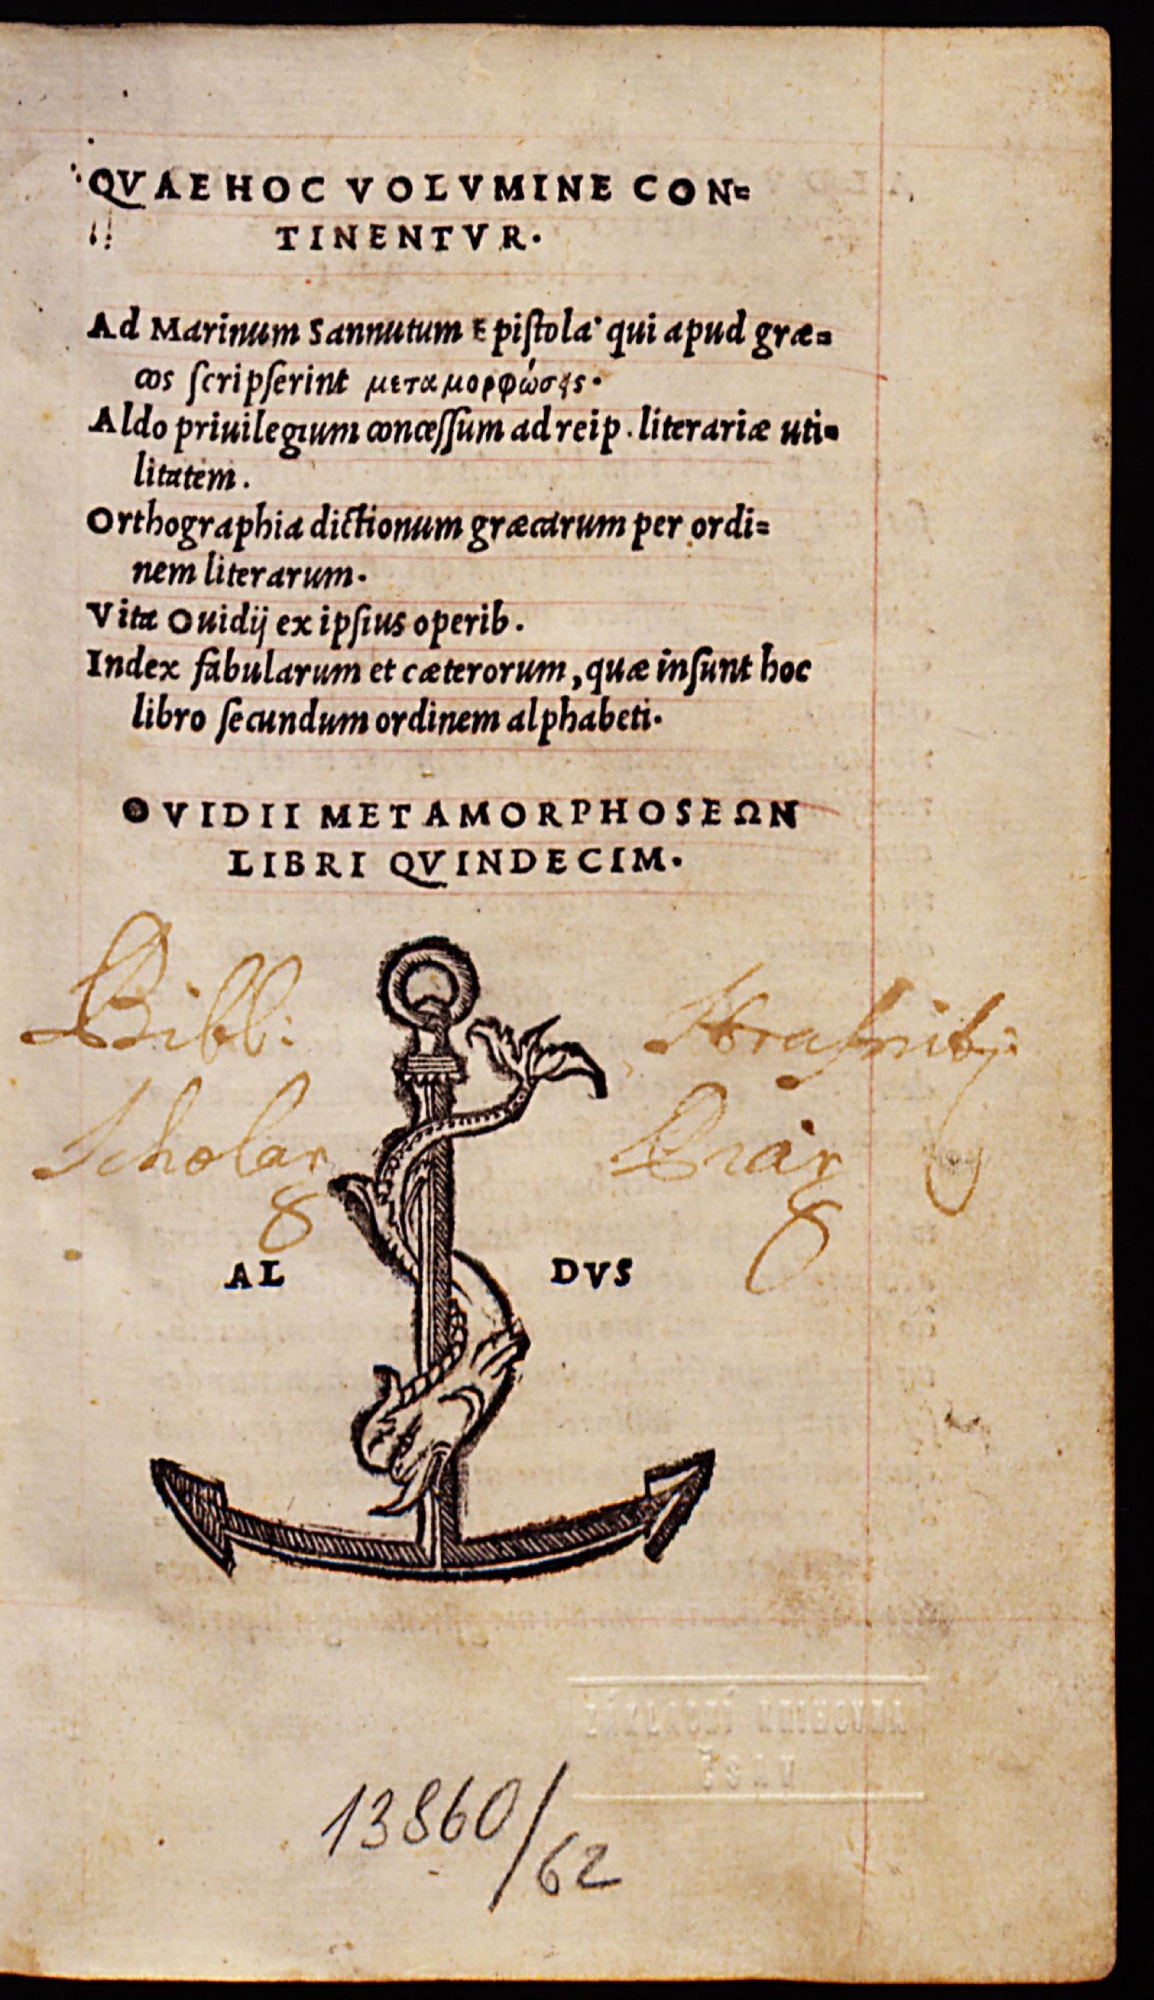 QVAE HOC VOLVMINE CON=
TINENTVR.
Ad Marinum Sannutum Epistola qui apud græ=
cos scripserint μεταμορφώσεις.
Aldo priuilegium concessum ad reip. literariæ uti=
litatem.
Orthographia dictionum græcarum per ordi=
nem literarum.
Vita Ouidij ex ipsius operib.
Index fabularum et cæterorum, quæ insunt hoc
libro secundum ordinem alphabeti.
OVIDII METAMORPHOSEΩN
LIBRI QVINDECIM.
Bibl:
Scholar
Piar
AL DVS
13860/62